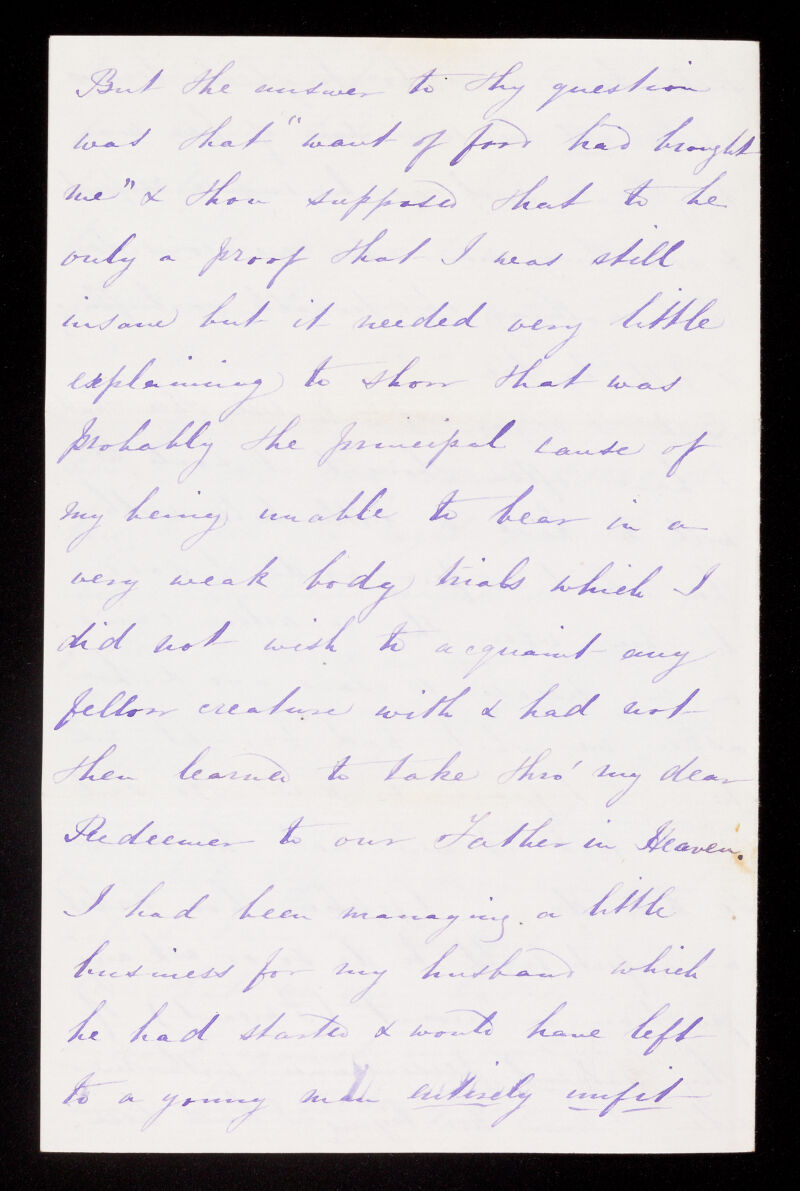 But the answer to thy question
was that "want of food had brought
me" & thou supposed that to be
only a proof that I was still
insane but it needed very little
explaining to show that was
probably the principal cause of
my being unable to bear in a
very weak body trials which I
did not wish to acquaint any
fellow creature with & had not
then learned to take thro' my dear
Redeemer to our Father in Heaven.
I had been managing a little
business for my husband which
he had started & would have left
to a young man entirely unfit